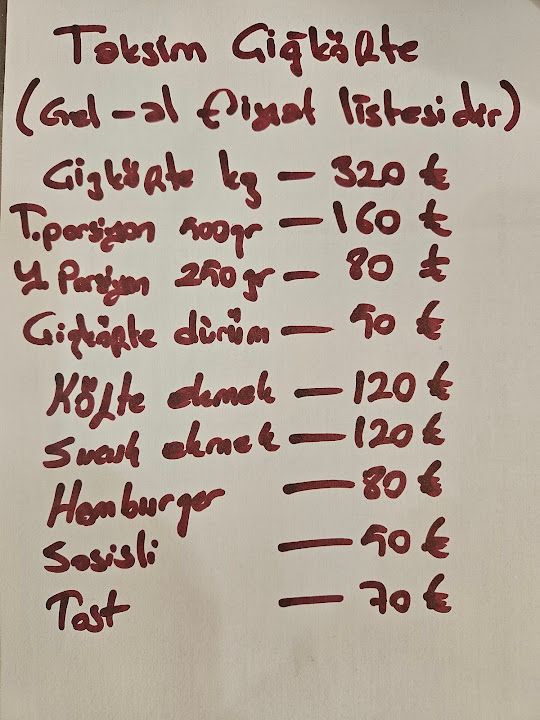 Taksim Çiğköfte
(Gel-al fiyat listesidir)
Çiğköfte kg — 320 ₺
T.porsiyon 500gr — 160 ₺
Y. Porsiyon 250gr — 80 ₺
Çiğköfte dürüm — 50 ₺
Köfte ekmek — 120 ₺
Sucuk ekmek — 120 ₺
Hamburger — 80 ₺
Sosisli — 50 ₺
Tost — 70 ₺